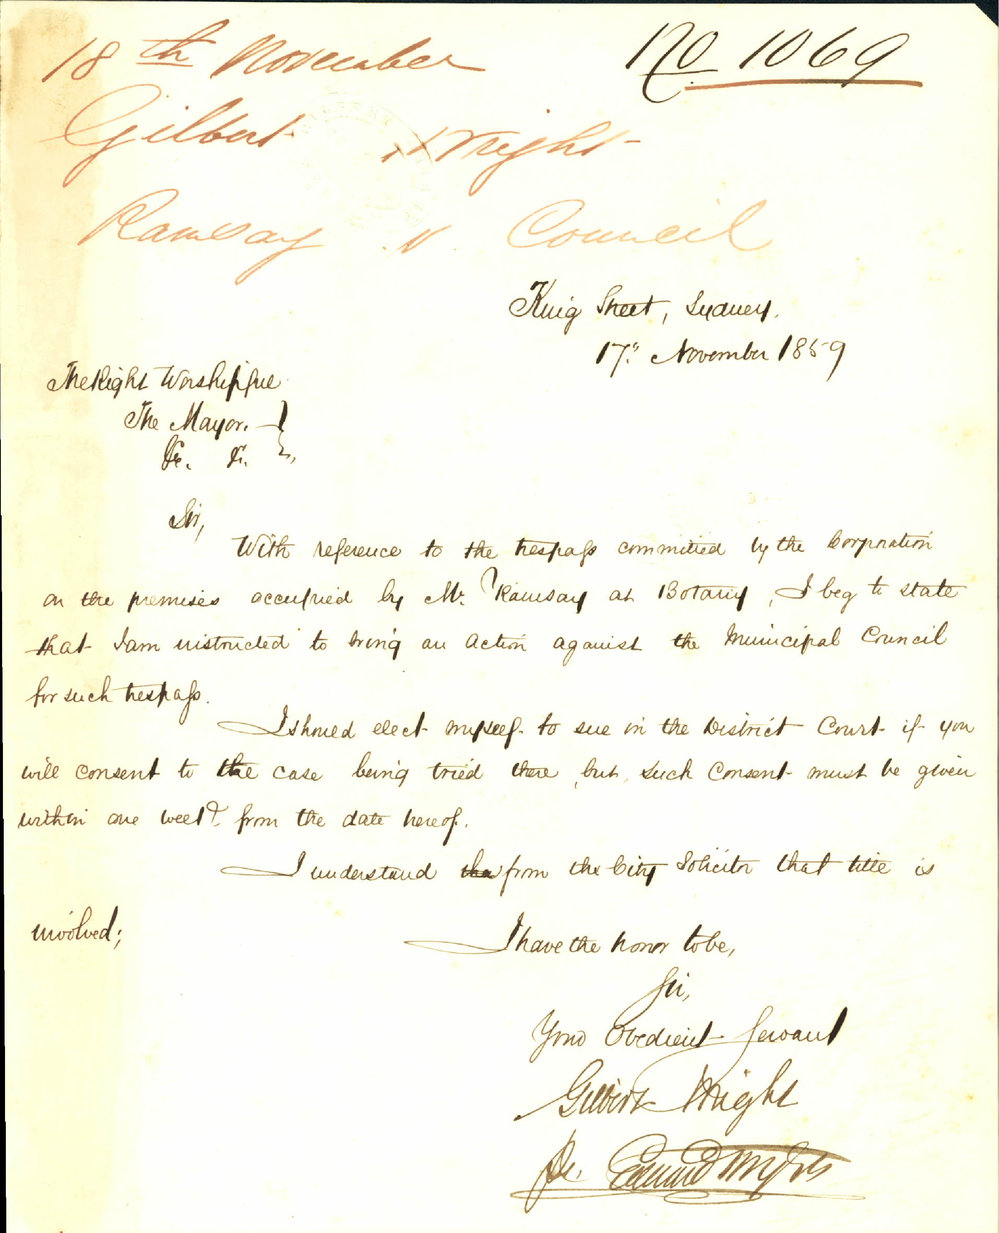 18th November
No 1069
Gilbert Wright
Ramsay v Council
King Street, Sydney.
17th November 1859
The Right Worshipful
The Mayor.
&c. &c.
Sir,
With reference to the trespass committed by the Corporation
on the premises occupied by Mr. Ramsay at Botany, I beg to state
that I am instructed to bring an action against the Municipal Council
for such trespass.
I should elect myself to sue in the District Court if you
will consent to the case being tried there, but such consent must be given
within one week from the date hereof.
I understand from the City Solicitor that title is
involved;
I have the honor to be,
Sir,
Your Obedient Servant
Gilbert Wright
pr.